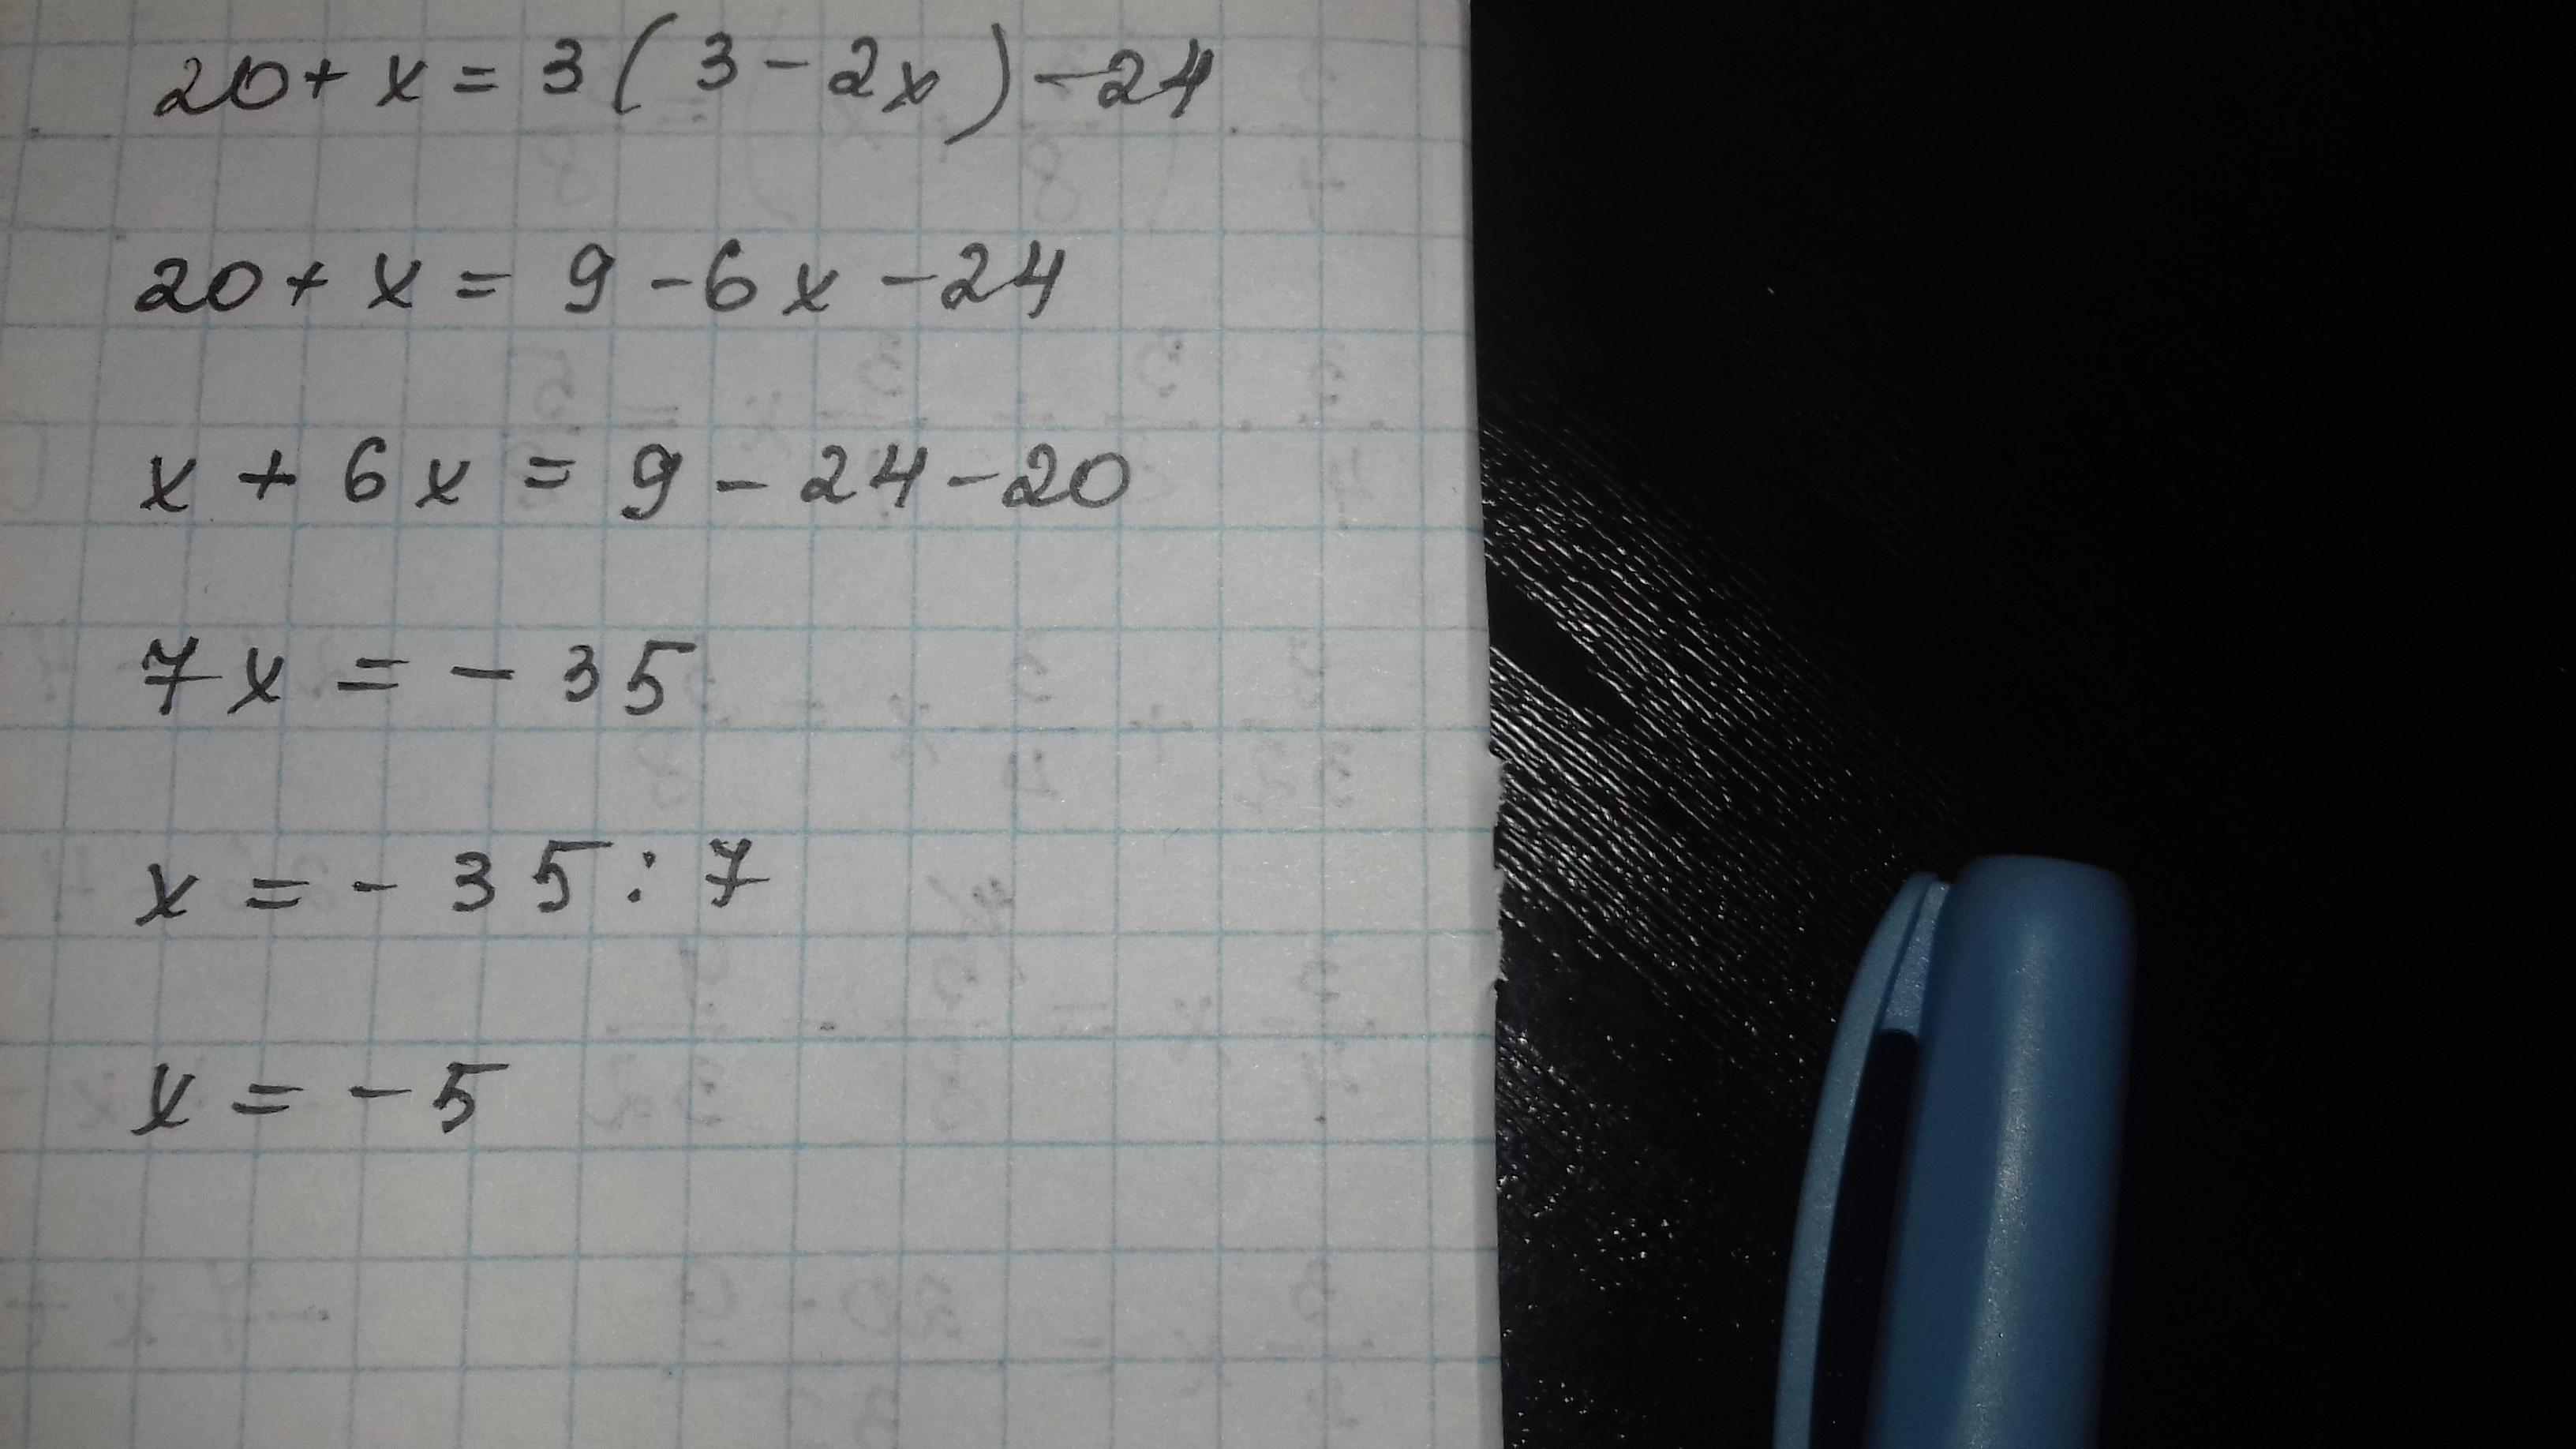 20 + x = 3 ( 3 - 2x ) - 24
20 + x = 9 - 6x - 24
x + 6x = 9 - 24 - 20
7x = - 35
x = - 35 : 7
x = - 5